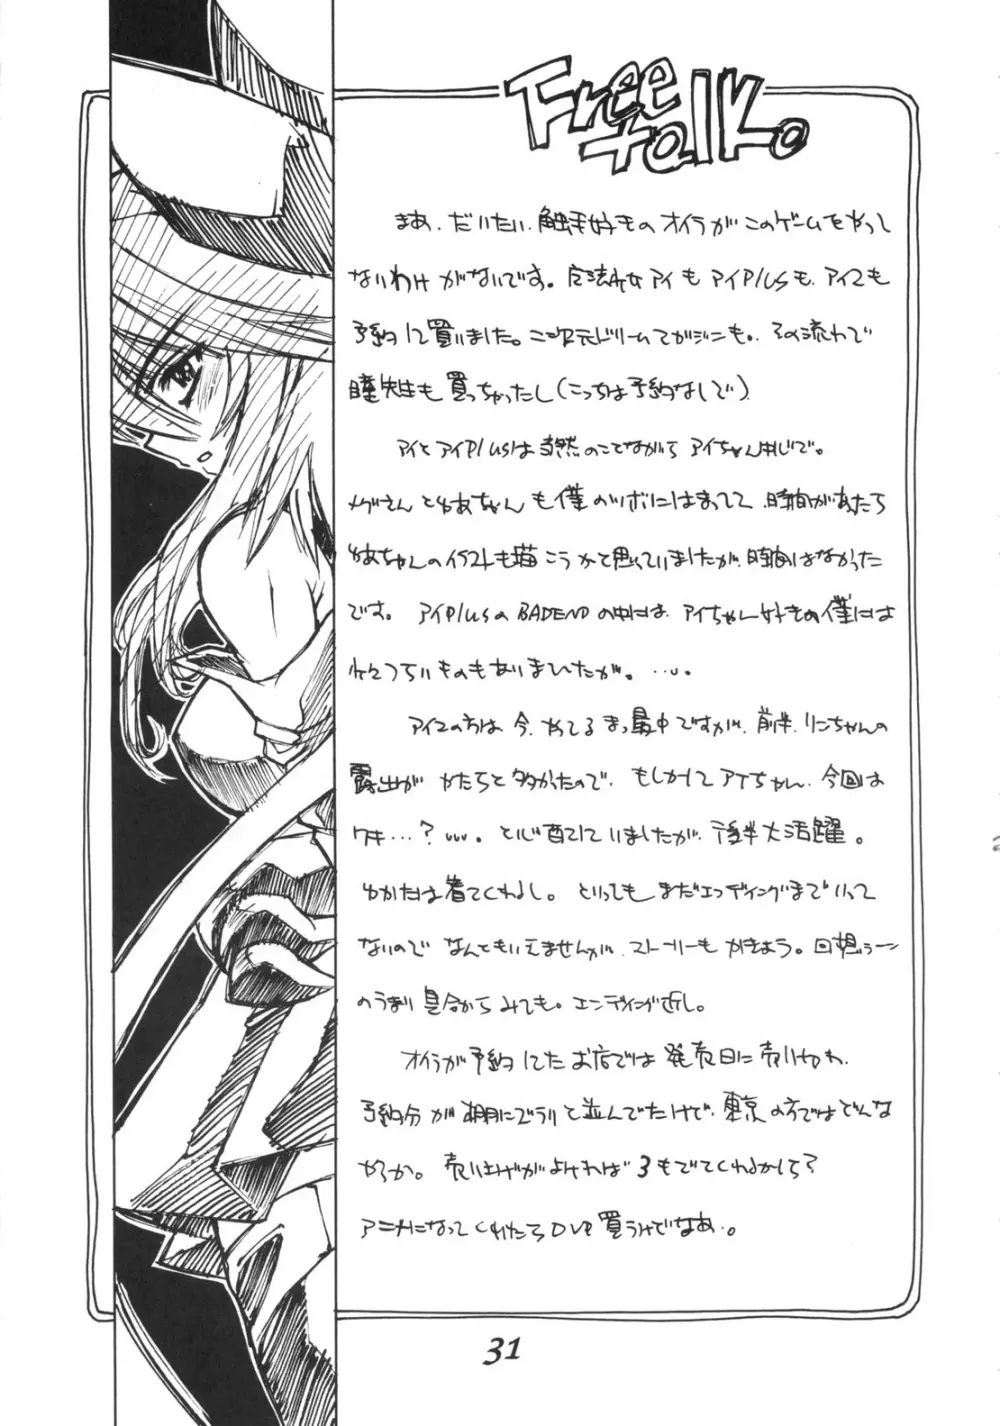 Free talk。
まあ、だいたい、触手好きのオイラがこのゲームをやって
ないわけがないです。アイも アイPlusも、アイ2も
予約して買いました。二次元ドリームマガジンも。その流れで
瞳先生も買っちゃったし(こっちは予約なしで)
アイとアイPlusは当然のことながら アイちゃん
さん とゆあちゃん も僕のツボにはまってて、時間があたら
ゆあちゃんのイラストも描こうかて思っていましたが、時間はなかった
です。 アイPlusのBADENDの中には、アイちゃん好きの僕には
ちょっとつらいものもありましたが。…。
アイ2の方は、今、やてるまっ最中ですが、前半、りんちゃんの
露出がかたちと多かったので、もしかしてアイちゃん、今回は
ワキ…?…。と心配していましたが、後半大活躍。
ゆかたは着てくれるし。 といってもまだエンディングまでいって
ないので なんともいえませんが、ストーリーもがきよう。回想シーン
のうまり具合からみても。エンディング近し。
オイラが予約してたお店では 発売日に売り切れ、
予約分が棚にズラリと並んでたけど、東京の方ではどんな
かろか。売り上げがよければ3もでてくれるかして?
アニメになってくれたらDVD買うんでなあ。。
31